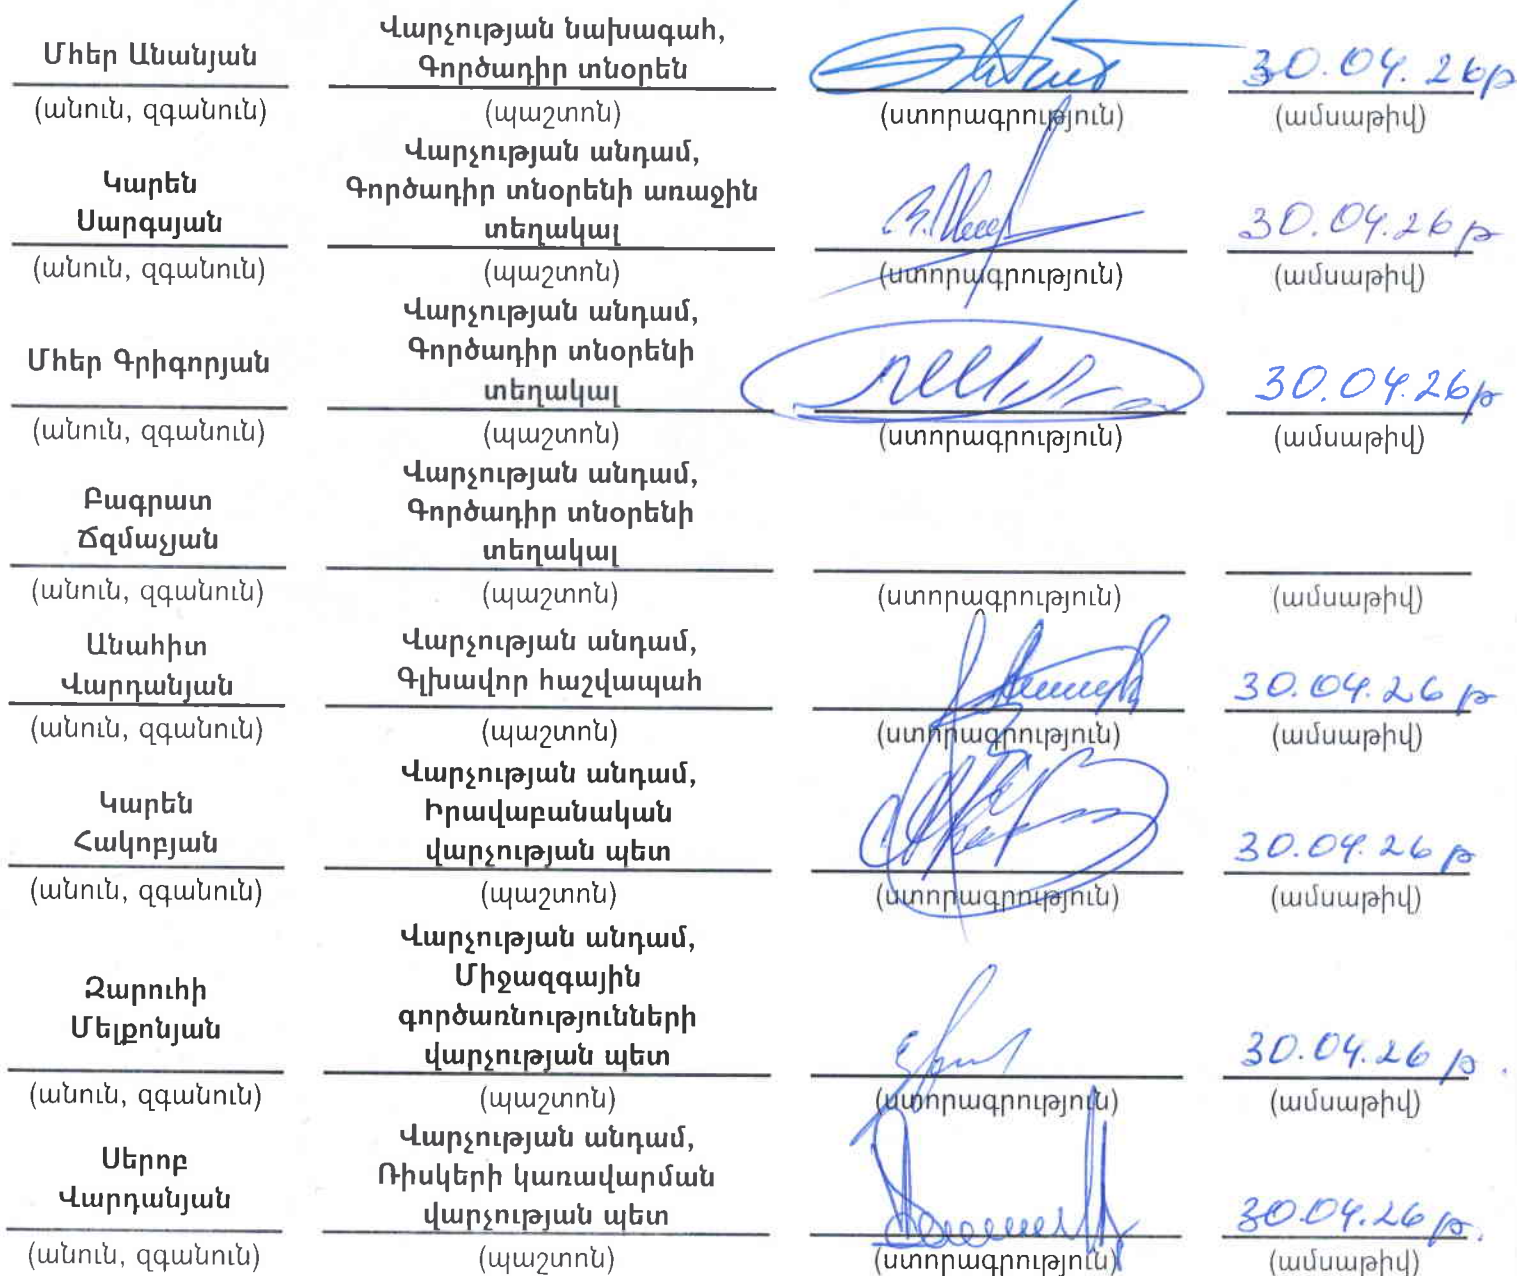 Մհեր Անանյան
Վարչության նախագահ,
Գործադիր տնօրեն
30.04.26թ
(անուն, ազգանուն) (պաշտոն) (ստորագրություն) (ամսաթիվ)
Կարեն
Սարգսյան
Վարչության անդամ,
Գործադիր տնօրենի առաջին
տեղակալ
30.04.26թ
(անուն, ազգանուն) (պաշտոն) (ստորագրություն) (ամսաթիվ)
Մհեր Գրիգորյան
Վարչության անդամ,
Գործադիր տնօրենի
տեղակալ
30.04.26թ
(անուն, ազգանուն) (պաշտոն) (ստորագրություն) (ամսաթիվ)
Բագրատ
Ճզմաչյան
Վարչության անդամ,
Գործադիր տնօրենի
տեղակալ
(անուն, ազգանուն) (պաշտոն) (ստորագրություն) (ամսաթիվ)
Անահիտ
Վարդանյան
Վարչության անդամ,
Գլխավոր հաշվապահ
30.04.26թ
(անուն, ազգանուն) (պաշտոն) (ստորագրություն) (ամսաթիվ)
Կարեն
Հակոբյան
Վարչության անդամ,
Իրավաբանական
վարչության պետ
30.04.26թ
(անուն, ազգանուն) (պաշտոն) (ստորագրություն) (ամսաթիվ)
Զարուհի
Մելքոնյան
Վարչության անդամ,
Միջազգային
գործառնությունների
վարչության պետ
30.04.26թ.
(անուն, ազգանուն) (պաշտոն) (ստորագրություն) (ամսաթիվ)
Սերոբ
Վարդանյան
Վարչության անդամ,
Ռիսկերի կառավարման
վարչության պետ
30.04.26թ.
(անուն, ազգանուն) (պաշտոն) (ստորագրություն) (ամսաթիվ)